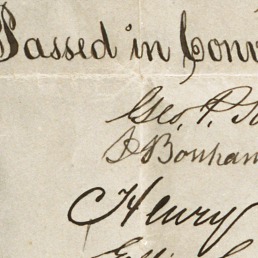 Passed in Conv
Geo. P.
J Bonham
Henry